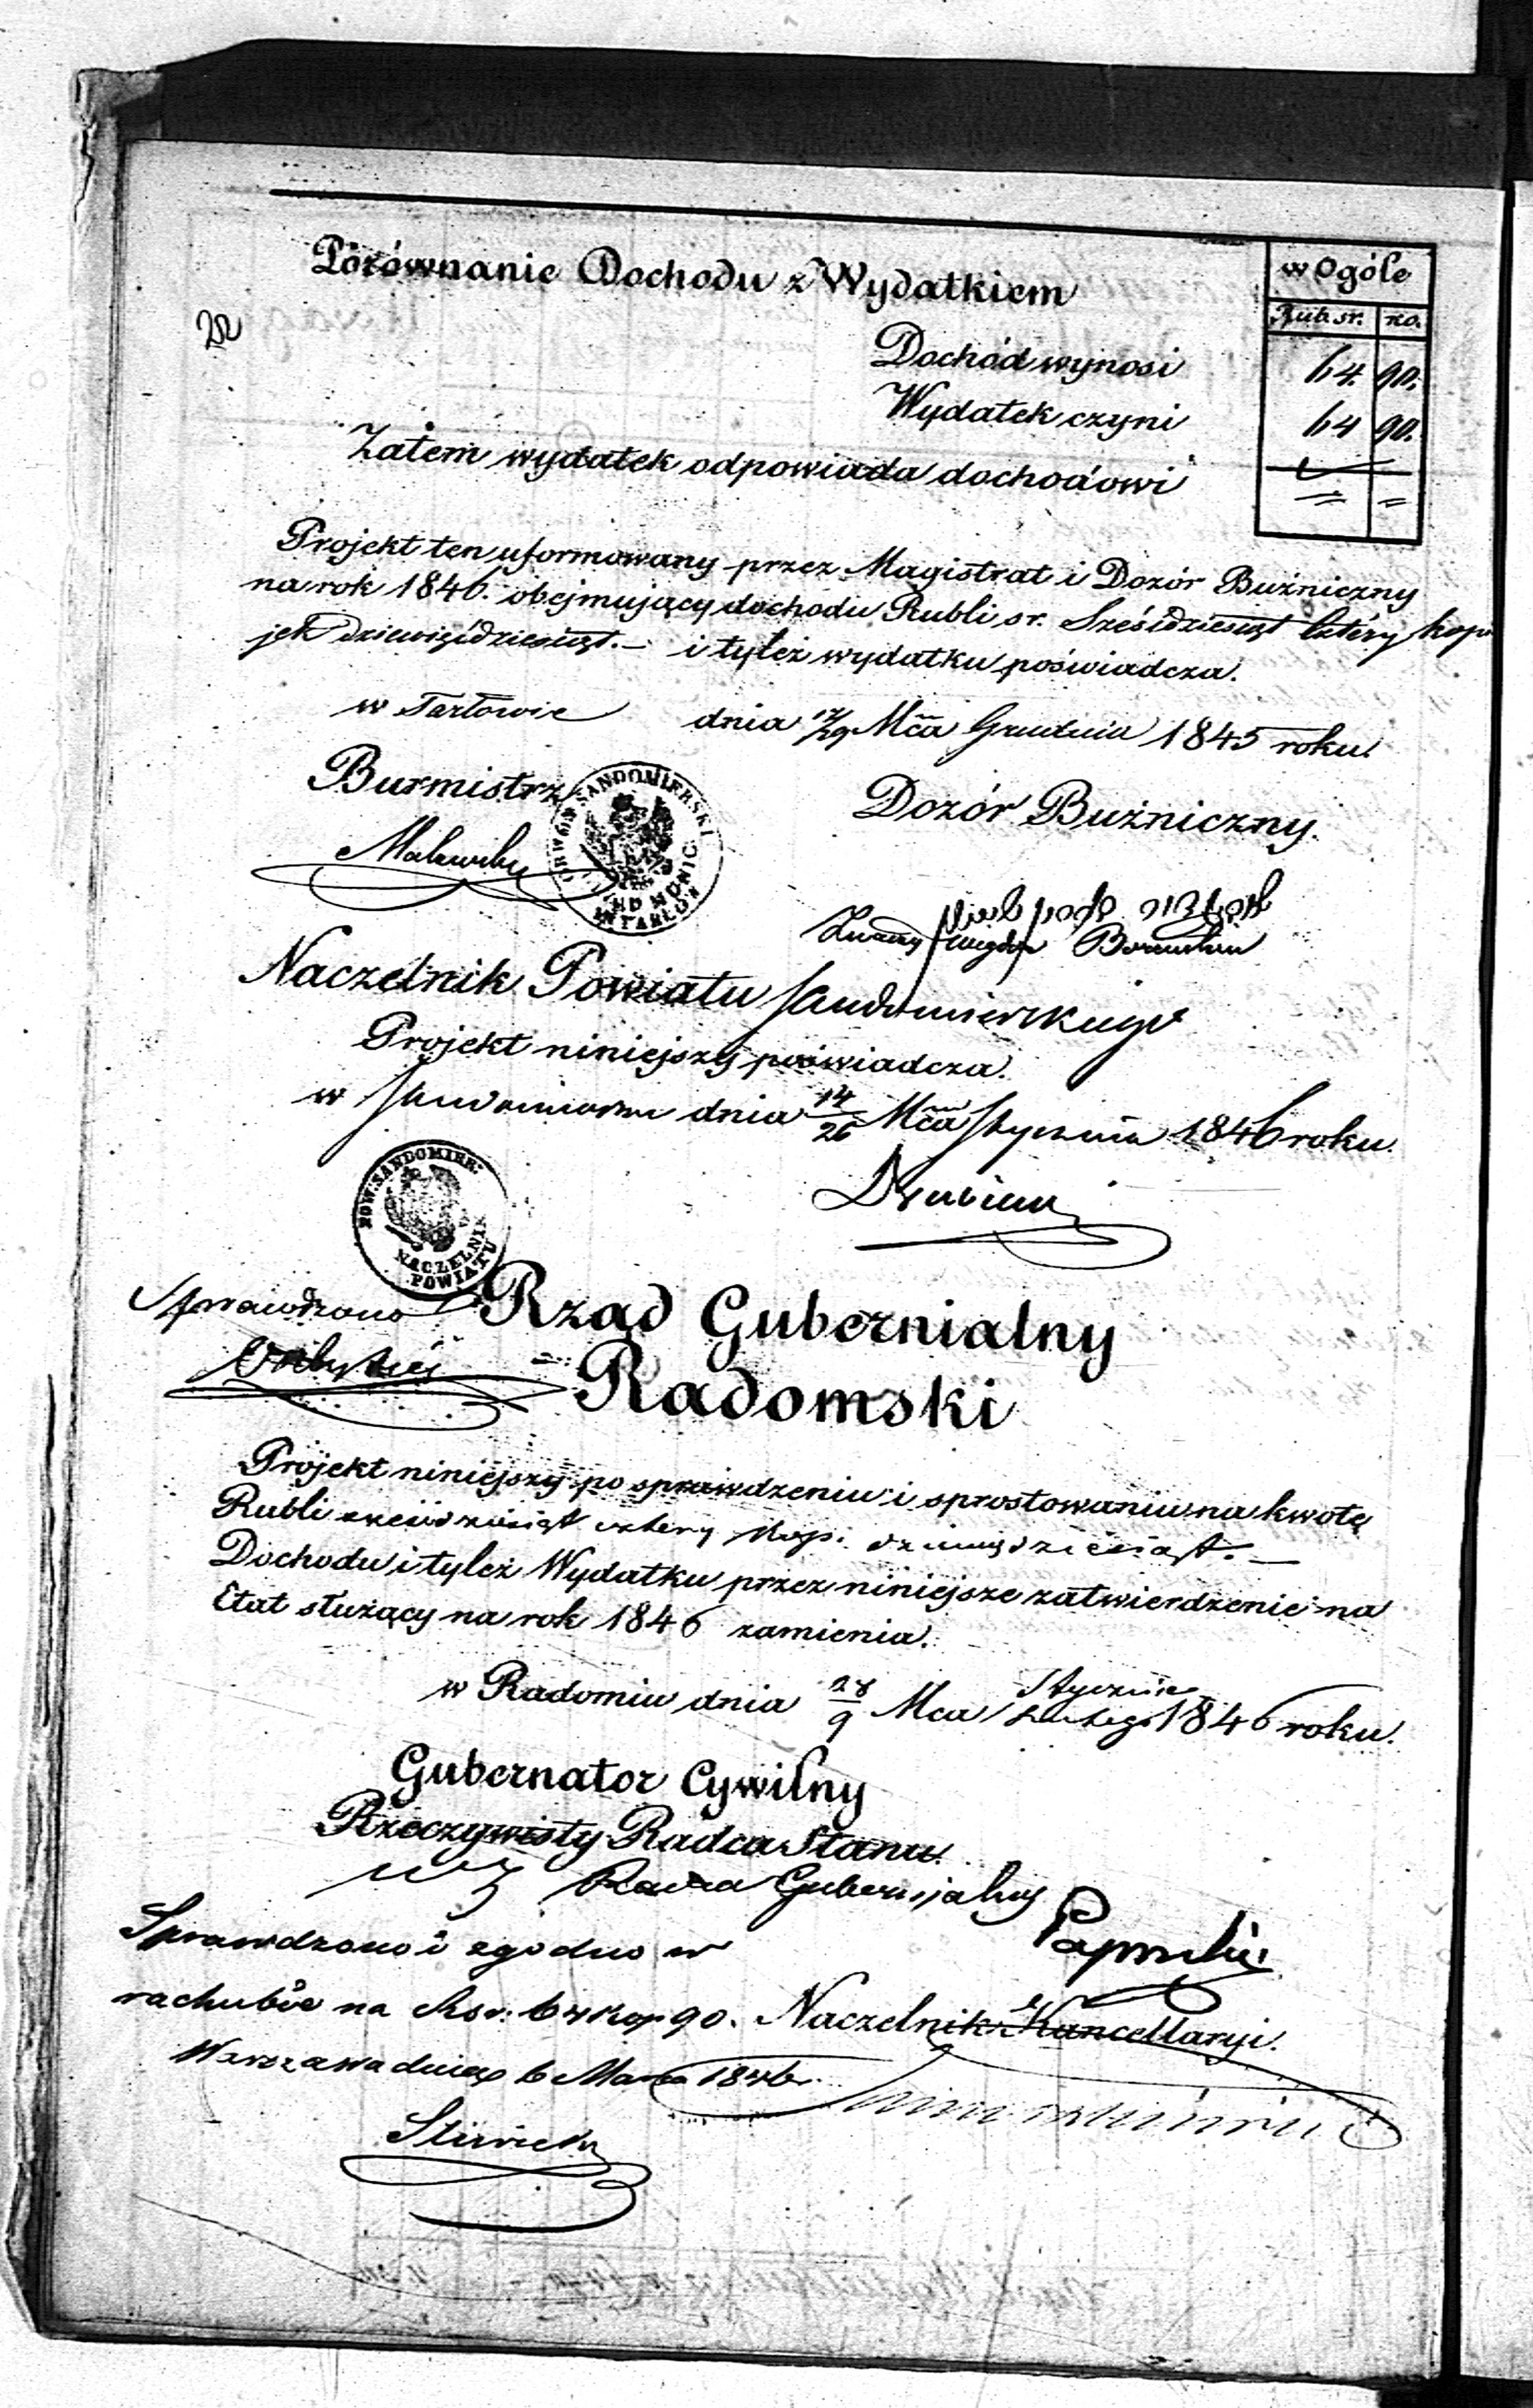 Porównanie Dochodu z Wydatkiem
w Ogóle
Rub. sr. ko.
Dochód wynosi 64. 90.
Wydatek czyni 64 90.
Zatem wydatek odpowiada dochodowi
Projekt ten uformowany przez Magistrat i Dozór Bużniczny
na rok 1846. obejmujący dochodu Rubli sr. Sześćdziesiąt Cztéry kop
jek dziewięćdziesiąt.— i tyleż wydatku poświadcza.
w Tarłowie dnia 17/29 Mca Grudnia 1845 roku.
Burmistrz
Dozór Bużniczny.
SANDOMIERSKI
W TARŁOW
Naczelnik Powiatu Sandomierskiego
Projekt niniejszy poświadcza.
w Sandomierzu dnia 14/26 Mca Stycznia 1846 roku.
POW. SANDOMIER:
NACZELNIK
POWIATU
Sprawdzono
Rząd Gubernialny
Radomski
Projekt niniejszy po sprawdzeniu i sprostowaniu na kwotę
Rubli sześćdziesiąt cztery kop. dziewięćdziesiąt.—
Dochodu i tyleż Wydatku przez niniejsze zatwierdzenie na
Etat służący na rok 1846 zamienia.
w Radomiu dnia 28/9 Mca Stycznia/Lutego 1846 roku.
Gubernator Cywilny
Rzeczywisty Radca Stanu.
wz Radca Gubernjalny
Sprawdzono i zgodno w
rachubie na Rsr. 64 kop 90. Naczelnik Kancellaryi.
Warszawa dnia 6 Marca 1846.